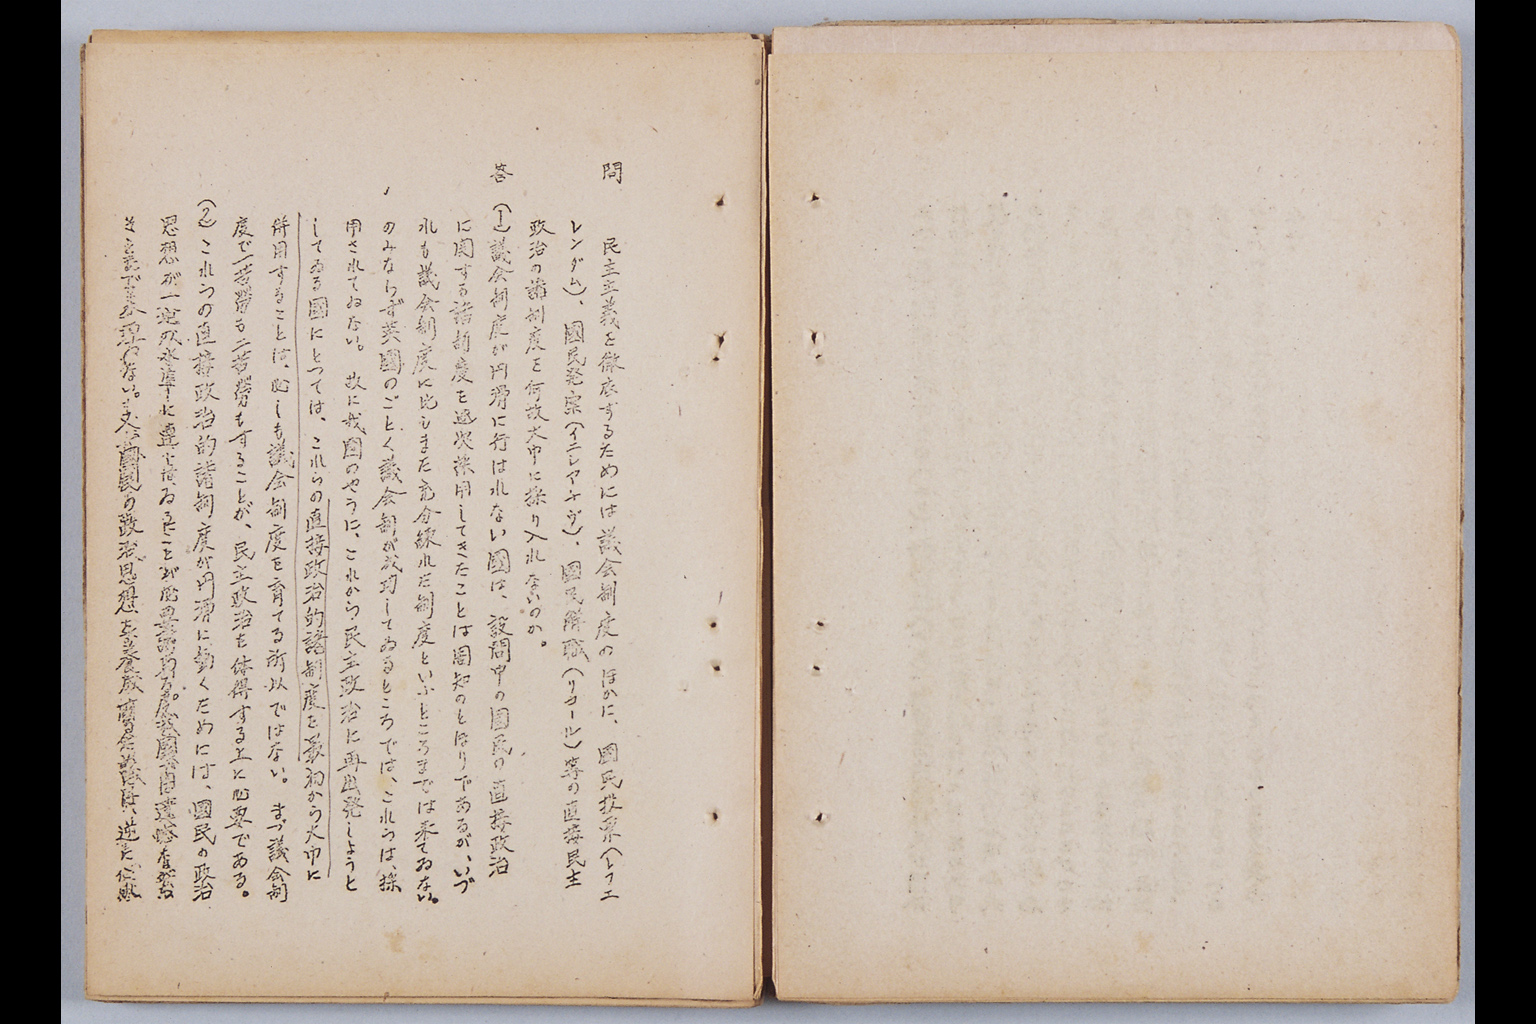 問
民主主義を徹底するためには議会制度のほかに、國民投票(レフエ
レンダム)、國民発案(イニシアチヴ)、國民解職(リコール)等の直接民主
政治の諸制度を何故大巾に採り入れないのか。
答
(1)議会制度が円滑に行はれない國は、設問中の國民の直接政治
に関する諸制度を逐次採用してきたことは周知のとほりであるが、いづ
れも議会制度に比しまた充分練れた制度といふところまでは来てゐない。
のみならず英國のごとく議会制が成功してゐるところでは、これらは、採
用されてゐない。故に我國のやうに、これから民主政治に再出発しようと
してゐる國にとつては、これらの直接政治的諸制度を最初から大巾に
併用することは、必しも議会制度を育てる所以ではない。まづ議会制
度で一苦労も二苦労もすることが、民主政治を体得する上に必要である。
(2)これらの直接政治的諸制度が円滑に動くためには、國民の政治
思想が一定の水準に達してゐることが必要である。我國では遺憾ながら